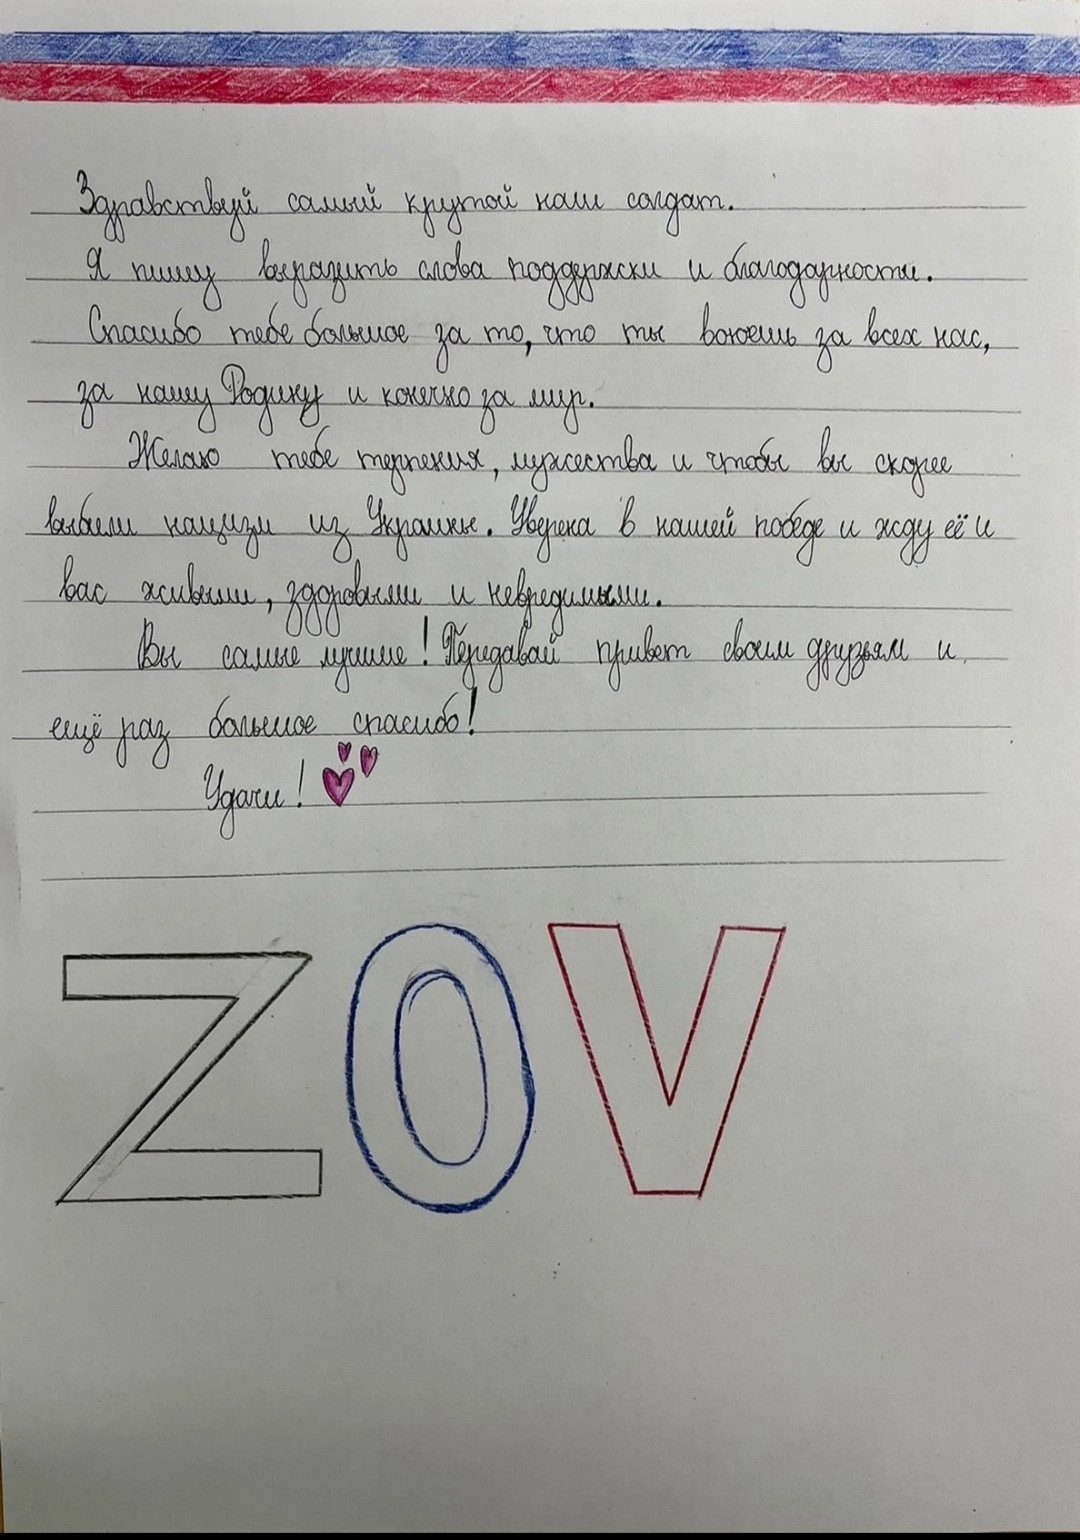 Здравствуй самый крутой наш солдат.
Я пишу выразить слова поддержки и благодарности.
Спасибо тебе большое за то, что ты воюешь за всех нас,
за нашу Родину и конечно за мир.
Желаю тебе терпения, мужества и чтобы вы скорее
выбили нацизм из Украины. Уверена в нашей победе и жду её и
вас живыми, здоровыми и невредимыми.
Вы самые лучшие! Передавай привет своим друзьям и
ещё раз большое спасибо!
Удачи!
ZOV